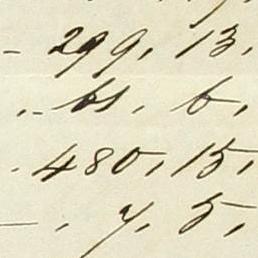 – 299, 13,
„ 61, 6,
480, 15,
– , 7, 5,